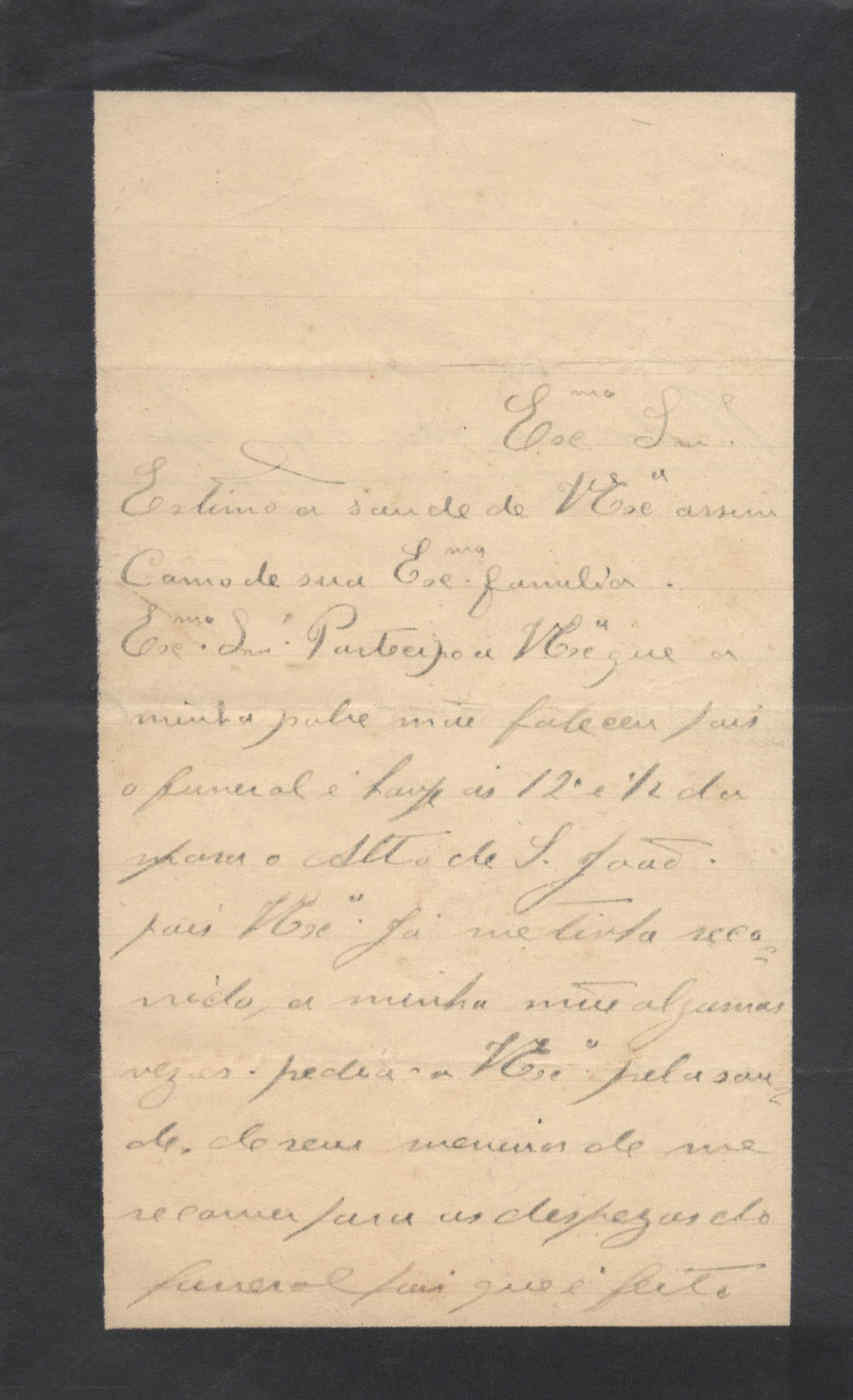 Exc.mo Snr.
Estimo a saude de V Exc.a assim
Como de sua Exc.ma familia.
Exc.mo Snr. Partecipo a V Exc.a que a
minha pobre mãe faleceu pois
o funeral é hoje ás 12 e 1/2 da
para o Alto de S. João.
pois V Exc.a já me tinha seco-
rrido, a minha mãe algumas
vezes. pedia a V Exc.a pela sau-
de. de seus meninos de me
secorrer para as despezas do
funeral pois que é feito